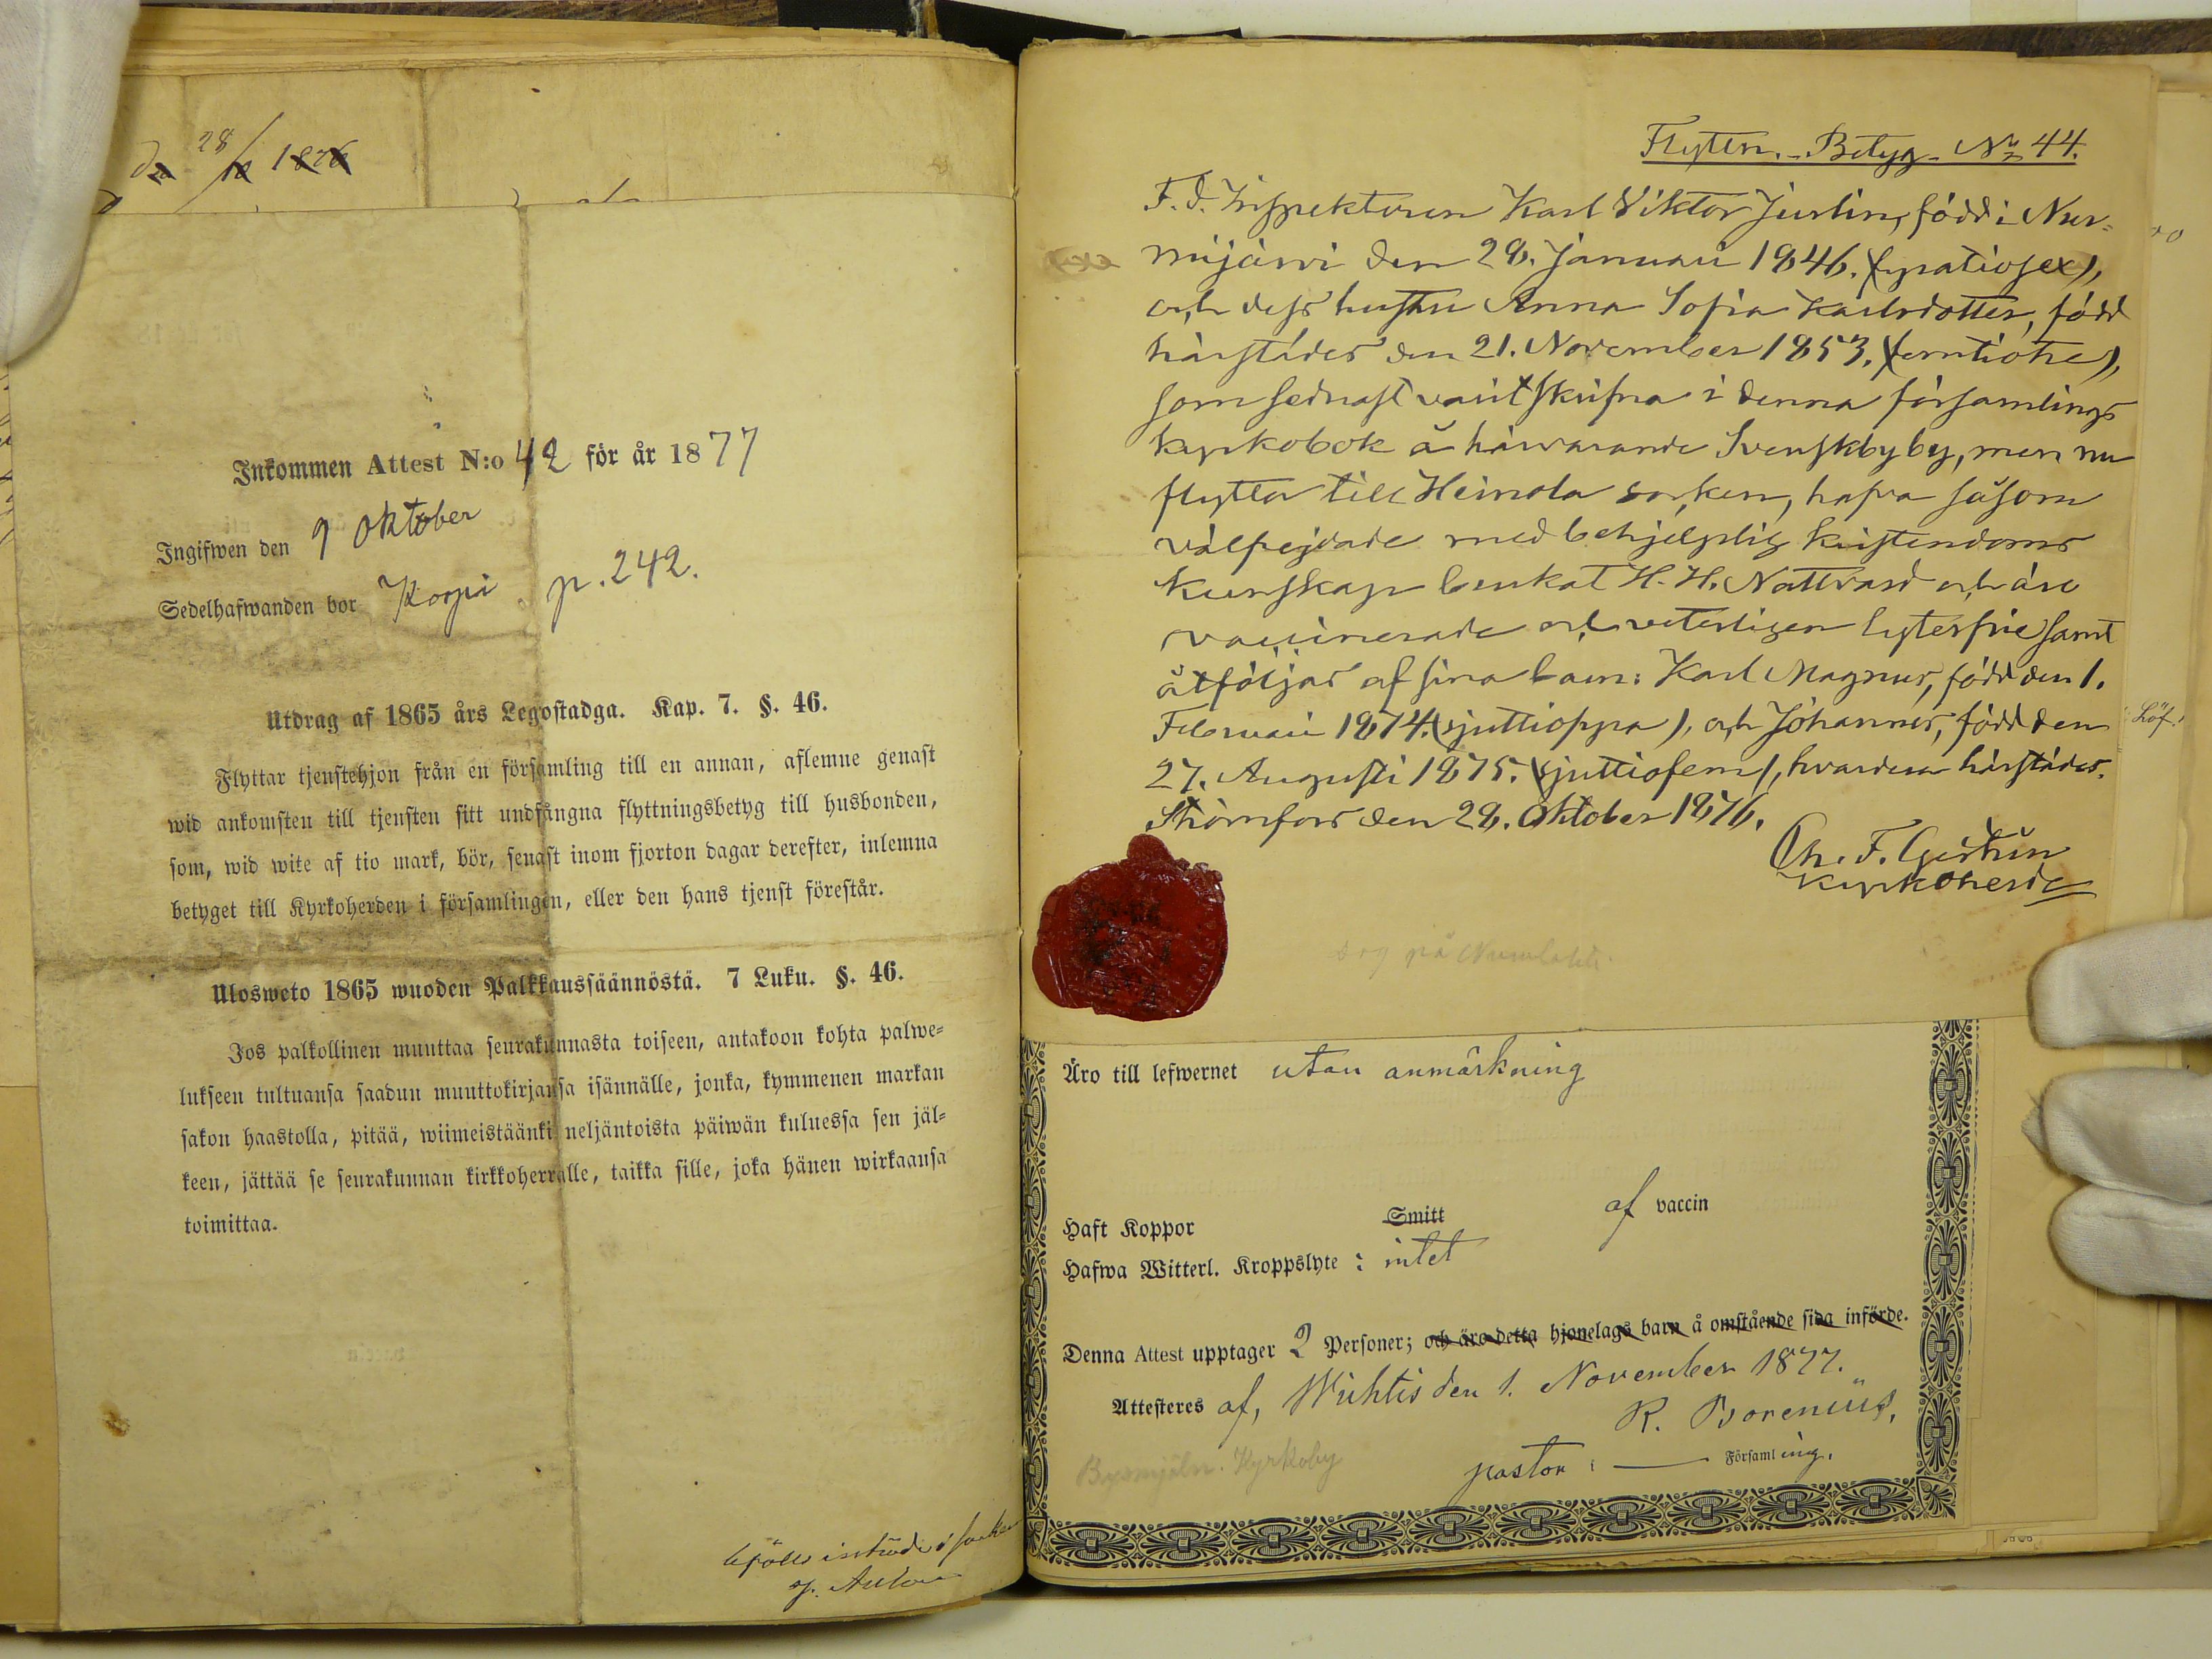 28/10 1876
Inkommen Attest N:o 42 för år 1877
Ingifwen den 9 Oktober
Sedelhafwanden bor Korpi p. 242.
Utdrag af 1865 års Legostadga. Kap. 7. §. 46.
Flyttar tjenstehjon från en församling till en annan, aflemne genast
wid ankomsten till tjensten sitt undfångna flyttningsbetyg till husbonden,
som, wid wite af tio mark, bör, senast inom fjorton dagar derefter, inlemna
betyget till Kyrkoherden i församlingen, eller den hans tjenst förestår.
Ulosweto 1865 wuoden Palkkaussäännöstä. 7 Luku. §. 46.
Jos palkollinen muuttaa seurakunnasta toiseen, antakoon kohta palwe-
lukseen tultuansa saadun muuttokirjansa isännälle, jonka, kymmenen markan
sakon haastolla, pitää, wiimeistäänki neljäntoista päiwän kuluessa sen jäl-
keen, jättää se seurakunnan kirkkoherralle, taikka sille, joka hänen wirkaansa
toimittaa.
Flyttn.-Betyg- No 44.
F.d. Inspektoren Karl Viktor Juslin, född i Nur-
mijärvi den 28. Januari 1846. (fyratiosex),
och dess hustru Anna Sofia Karlsdotter, född
härstädes den 21. November 1853. (femtiotre),
som sednast varit skrifna i denna församlings
kyrkobok å härvarande Svenskby by, men nu
flytta till Heinola socken, hafva såsom
välfrejdade med behjelplig kristendoms
kunskap brukat H. H. Nattvard och äro
vaccinerade och veterligen lytesfrie samt
åtföljas af sina barn: Karl Magnus, född den 1.
Februari 1874. (sjuttiofyra), och Johannes, född den
27. Augusti 1875. (sjuttiofem), hvardera härstädes.
Strömfors den 28. Oktober 1876.
Kyrkoherde
Äro till lefwernet utan anmärkning
Haft Koppor Smitt af vaccin
Hafwa Witterl. Kroppslyte : intet
Denna Attest upptager 2 Personer; och äro detta hjonelags barn å omstående sida införde.
Attesteres af, Wichtis den 1. November 1877.
R. Borenius,
Kyrkoby
pastor i — Församling.
Löf.